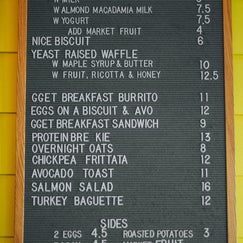 W ALMOND MACADAMIA MILK 7.5
W YOGURT 7.5
ADD MARKET FRUIT 4
NICE BISCUIT 6
YEAST RAISED WAFFLE
W MAPLE SYRUP & BUTTER 10
W FRUIT, RICOTTA & HONEY 12.5
GGET BREAKFAST BURRITO 11
EGGS ON A BISCUIT & AVO 12
GGET BREAKFAST SANDWICH 9
PROTEIN BRE KIE 13
OVERNIGHT OATS 8
CHICKPEA FRITTATA 12
AVOCADO TOAST 11
SALMON SALAD 16
TURKEY BAGUETTE 12
SIDES
2 EGGS 4.5 ROASTED POTATOES 3
4.5 FRUIT